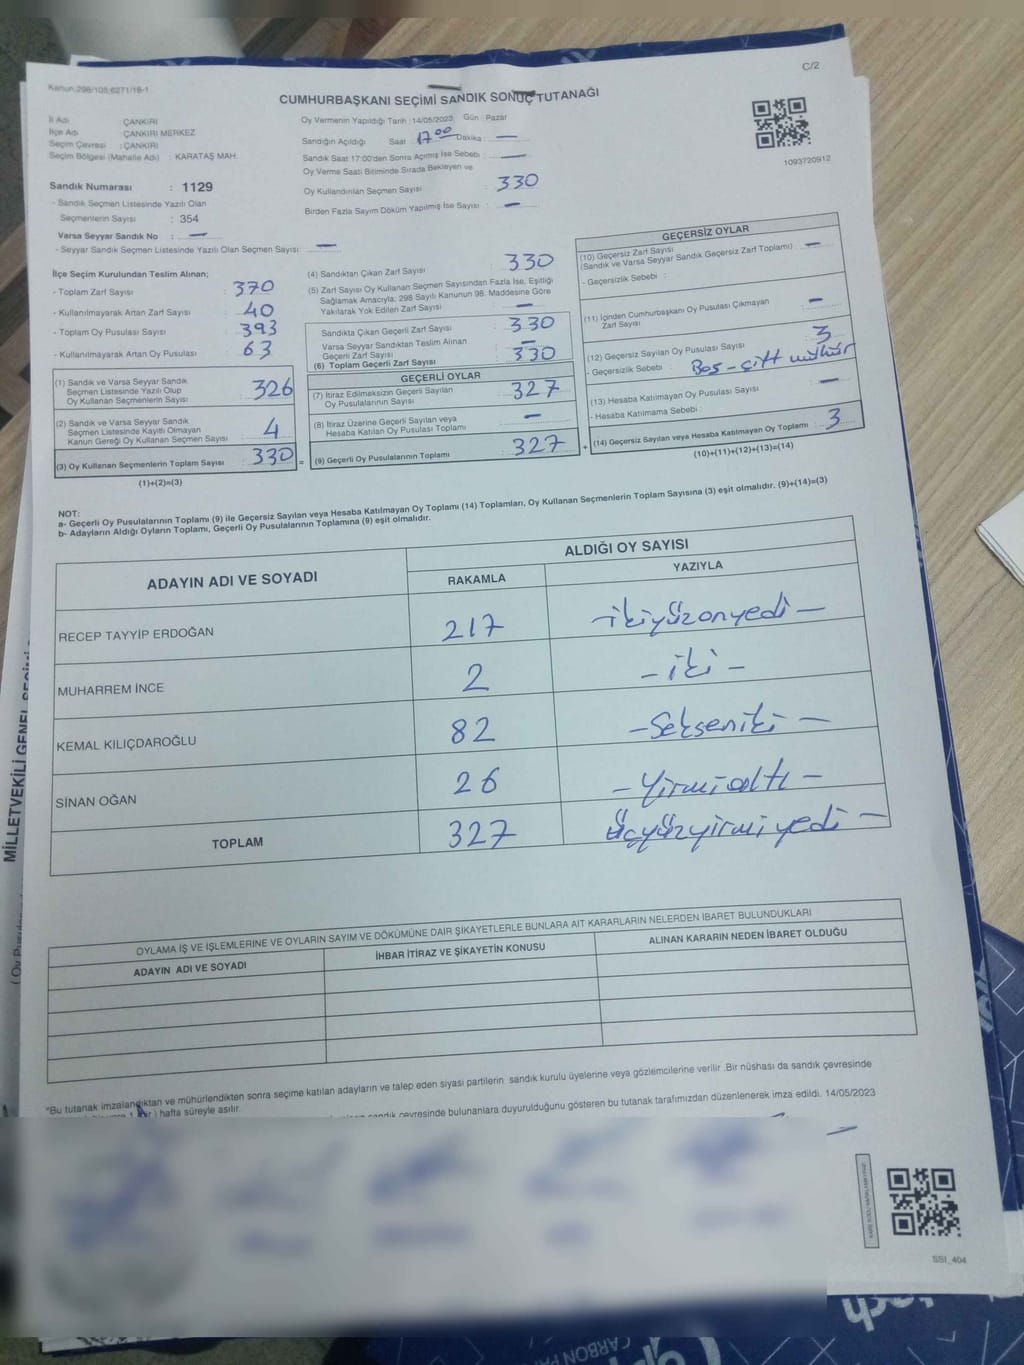 Kanun:298/105;6271/18-1
C/2
CUMHURBAŞKANI SEÇİMİ SANDIK SONUÇ TUTANAĞI
İl Adı : ÇANKIRI
İlçe Adı : ÇANKIRI MERKEZ
Seçim Çevresi : ÇANKIRI
Seçim Bölgesi (Mahalle Adı) : KARATAŞ MAH.
Sandık Numarası : 1129
- Sandık Seçmen Listesinde Yazılı Olan
Seçmenlerin Sayısı : 354
Varsa Seyyar Sandık No : —
- Seyyar Sandık Seçmen Listesinde Yazılı Olan Seçmen Sayısı : —
Oy Vermenin Yapıldığı Tarih : 14/05/2023 Gün : Pazar
Sandığın Açıldığı Saat : 17 00 Dakika : —
Sandık Saat 17:00'den Sonra Açılmış İse Sebebi : —
Oy Verme Saati Bitiminde Sırada Bekleyen ve
Oy Kullandırılan Seçmen Sayısı : 330
Birden Fazla Sayım Döküm Yapılmış İse Sayısı : —
1093720912
İlçe Seçim Kurulundan Teslim Alınan;
- Toplam Zarf Sayısı : 370
- Kullanılmayarak Artan Zarf Sayısı : 40
- Toplam Oy Pusulası Sayısı : 393
- Kullanılmayarak Artan Oy Pusulası : 63
(1) Sandık ve Varsa Seyyar Sandık
Seçmen Listesinde Yazılı Olup
Oy Kullanan Seçmenlerin Sayısı : 326
(2) Sandık ve Varsa Seyyar Sandık
Seçmen Listesinde Kayıtlı Olmayan
Kanun Gereği Oy Kullanan Seçmen Sayısı : 4
(3) Oy Kullanan Seçmenlerin Toplam Sayısı : 330 =
(1)+(2)=(3)
(4) Sandıktan Çıkan Zarf Sayısı : 330
(5) Zarf Sayısı Oy Kullanan Seçmen Sayısından Fazla İse, Eşitliği
Sağlamak Amacıyla, 298 Sayılı Kanunun 98. Maddesine Göre
Yakılarak Yok Edilen Zarf Sayısı : —
Sandıkta Çıkan Geçerli Zarf Sayısı : 330
Varsa Seyyar Sandıktan Teslim Alınan
Geçerli Zarf Sayısı : —
(6) Toplam Geçerli Zarf Sayısı : 330
GEÇERLİ OYLAR
(7) İtiraz Edilmeksizin Geçerli Sayılan
Oy Pusulalarının Sayısı : 327
(8) İtiraz Üzerine Geçerli Sayılan veya
Hesaba Katılan Oy Pusulası Toplamı : —
(9) Geçerli Oy Pusulalarının Toplamı : 327 +
GEÇERSİZ OYLAR
(10) Geçersiz Zarf Sayısı
(Sandık ve Varsa Seyyar Sandık Geçersiz Zarf Toplamı) : —
- Geçersizlik Sebebi :
(11) İçinden Cumhurbaşkanı Oy Pusulası Çıkmayan
Zarf Sayısı : —
(12) Geçersiz Sayılan Oy Pusulası Sayısı : 3
- Geçersizlik Sebebi : Boş - çift mühür
(13) Hesaba Katılmayan Oy Pusulası Sayısı : —
- Hesaba Katılmama Sebebi :
(14) Geçersiz Sayılan veya Hesaba Katılmayan Oy Toplamı : 3
(10)+(11)+(12)+(13)=(14)
NOT:
a- Geçerli Oy Pusulalarının Toplamı (9) ile Geçersiz Sayılan veya Hesaba Katılmayan Oy Toplamı (14) Toplamları, Oy Kullanan Seçmenlerin Toplam Sayısına (3) eşit olmalıdır. (9)+(14)=(3)
b- Adayların Aldığı Oyların Toplamı, Geçerli Oy Pusulalarının Toplamına (9) eşit olmalıdır.
ADAYIN ADI VE SOYADI
ALDIĞI OY SAYISI
RAKAMLA YAZIYLA
RECEP TAYYİP ERDOĞAN 217 — ikiyüzonyedi —
MUHARREM İNCE 2 — iki —
KEMAL KILIÇDAROĞLU 82 — Sekseniki —
SİNAN OĞAN 26 — Yirmialtı —
TOPLAM 327 Üçyüzyirmiyedi —
OYLAMA İŞ VE İŞLEMLERİNE VE OYLARIN SAYIM VE DÖKÜMÜNE DAİR ŞİKAYETLERLE BUNLARA AİT KARARLARIN NELERDEN İBARET BULUNDUKLARI
ADAYIN ADI VE SOYADI İHBAR İTİRAZ VE ŞİKAYETİN KONUSU ALINAN KARARIN NEDEN İBARET OLDUĞU
*Bu tutanak imzalandıktan ve mühürlendikten sonra seçime katılan adayların ve talep eden siyasi partilerin sandık kurulu üyelerine veya gözlemcilerine verilir .Bir nüshası da sandık çevresinde
) hafta süreyle asılır.
sandık çevresinde bulunanlara duyurulduğunu gösteren bu tutanak tarafımızdan düzenlenerek imza edildi. 14/05/2023
SSI_404
MİLLETVEKİLİ GENEL SEÇİMİ
CARBON